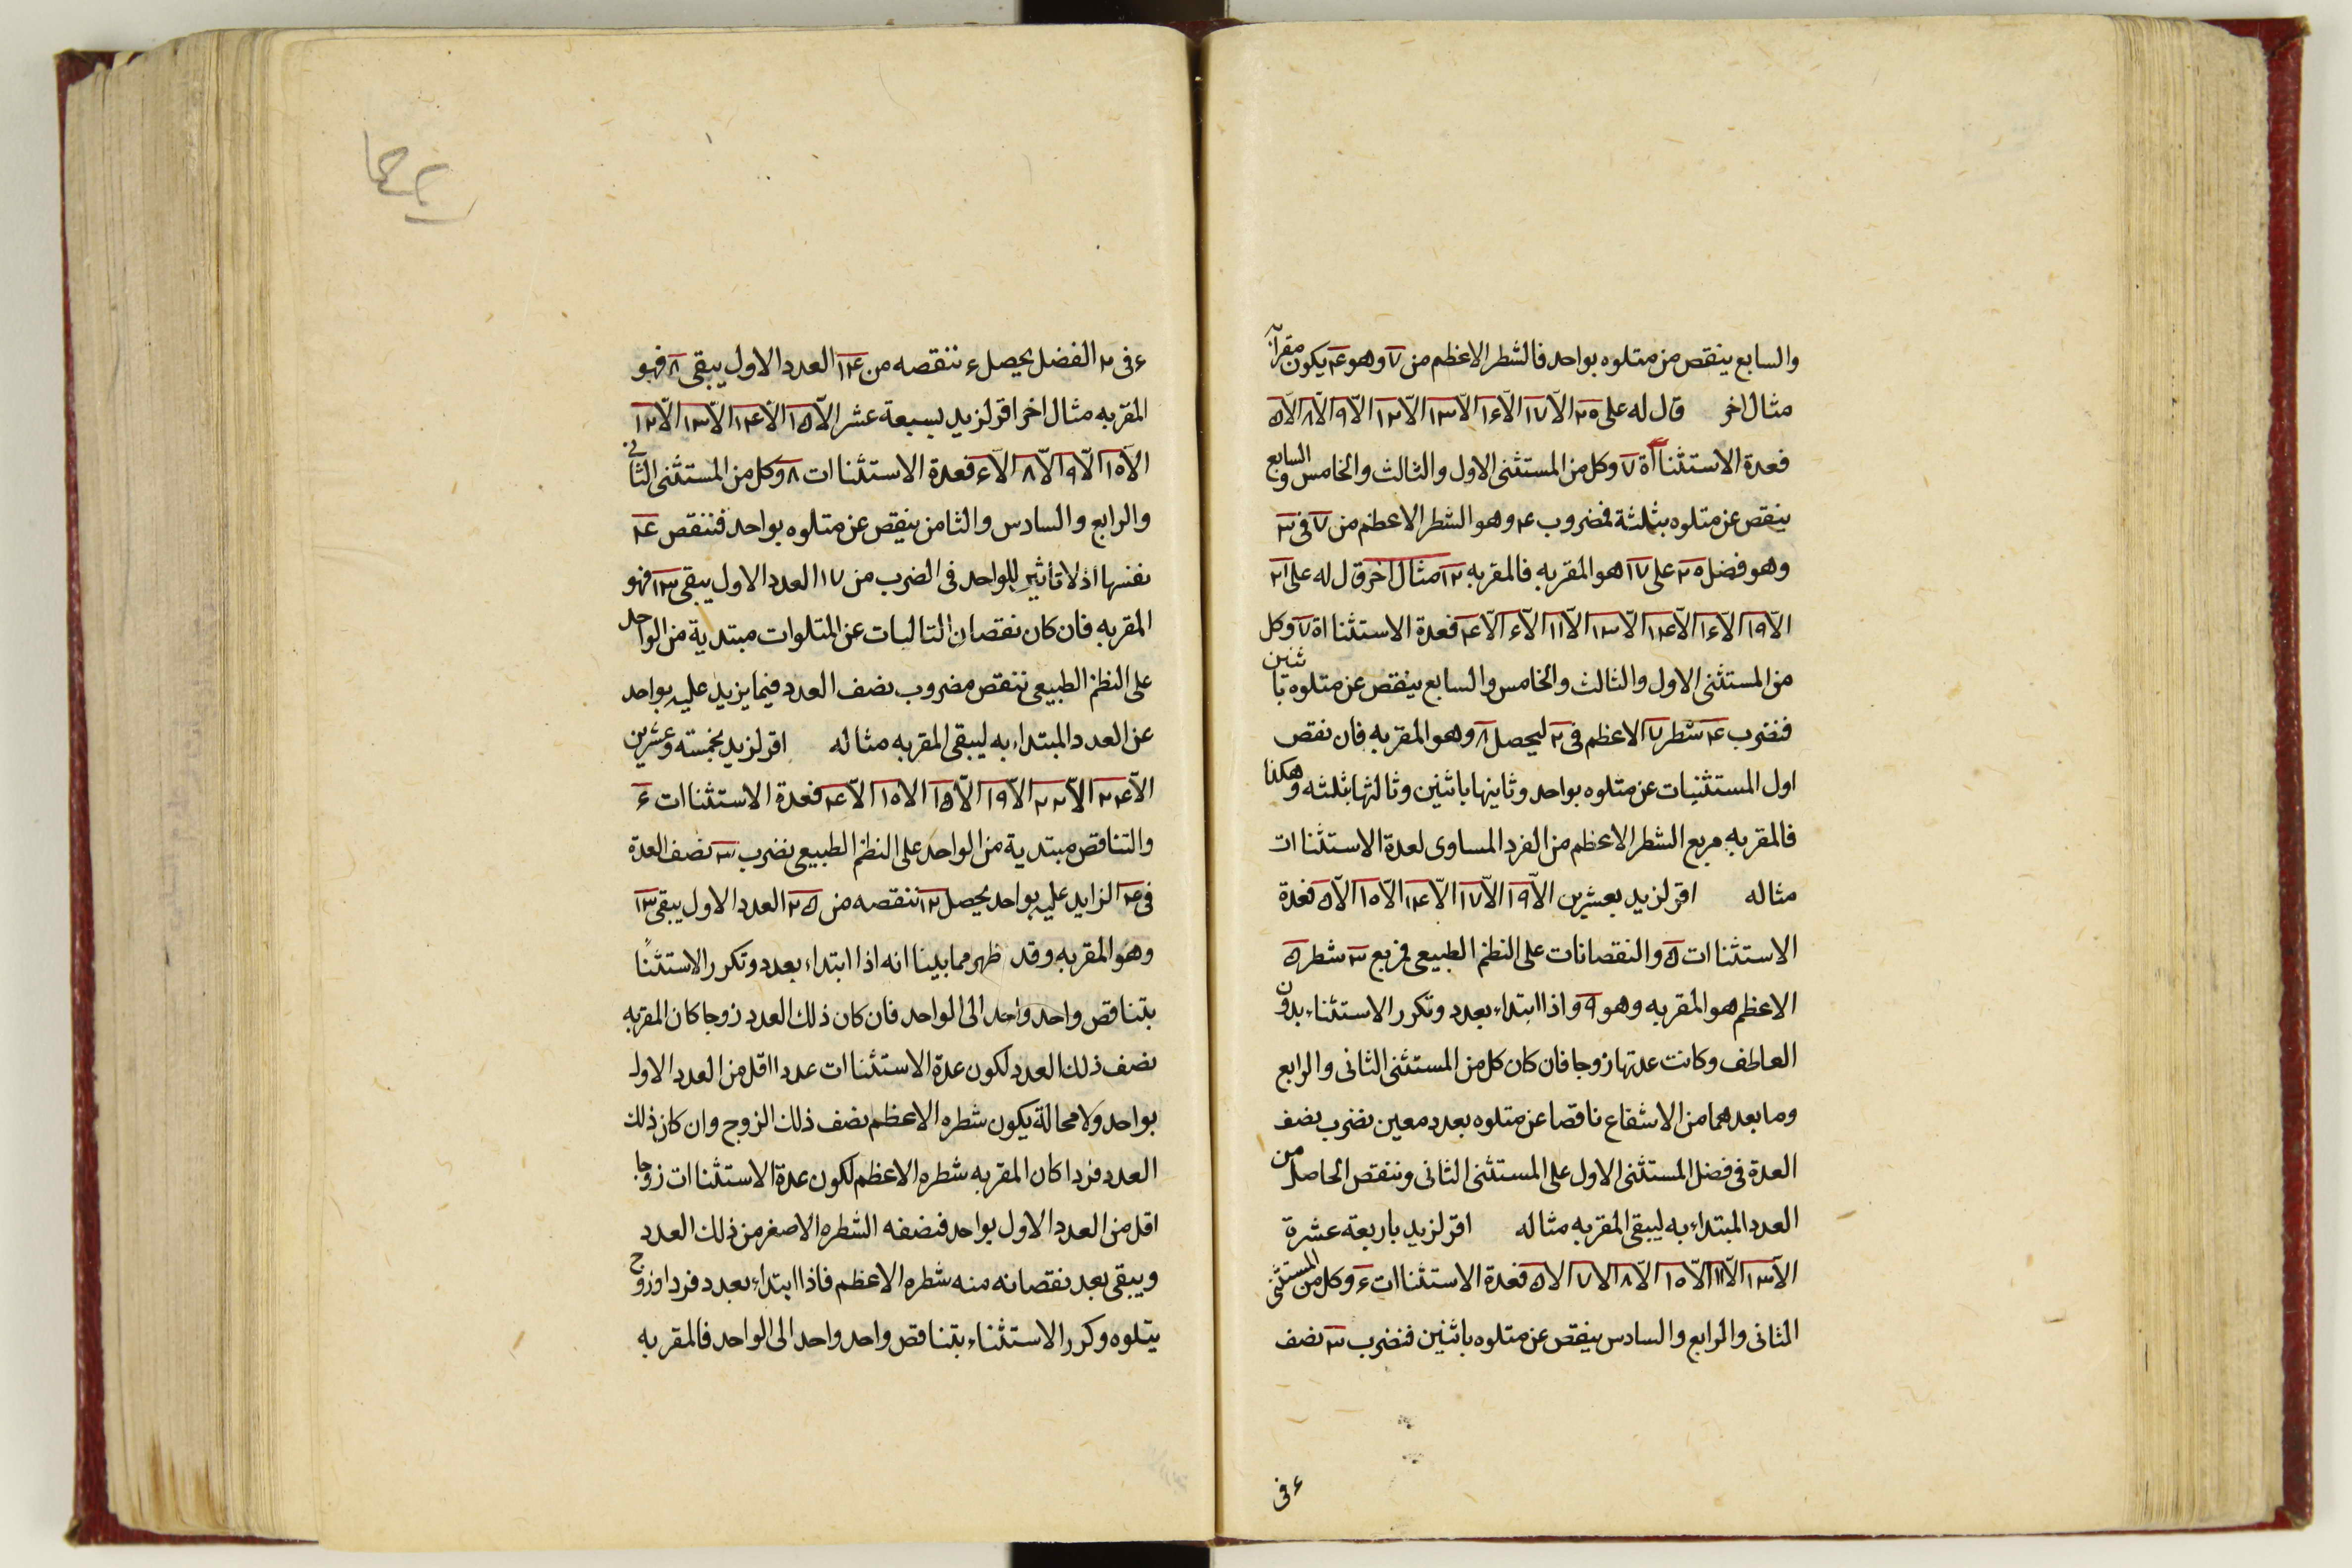 والسابع ينقص من متلوه بواحد فالشطر الاعظم من ٧ وهو ۴ يكون مقرابه
مثال اخر قال له على ٢٥ الا ١٧ الا ١۶ الا ١٣ الا ١٢ الا ٩ الا ٨ الا ۵
فعدة الاستثناآة ٧ وكل من المستثنى الاول والثالث والخامس والسابع
ينقص عن متلوه بثلثة فمضروب ۴ وهو الشطر الاعظم من ٧ فى ٣
وهو فضل ٢٥ على ١٧ هو المقربه فالمقربه ١٢ مثال اخر قال له على ٢١
الا ١٩ الا ١۶ الا ١۴ الا ١٣ الا ١١ الا ۶ الا ۴ فعدة الاستثنااة ٧ وكل
من المستثنى الاول والثالث والخامس والسابع ينقص عن متلوه باثنين
فنضرب ۴ شطر ٧ الاعظم فى ٢ ليحصل ٨ وهو المقربه فان نقص
اول المستثنيات عن متلوه بواحد وثانيها باثنين وثالثها بثلثه وهكذا
فالمقربه مربع الشطر الاعظم من الفرد المساوى لعدة الاستثناات
مثاله اقر لزيد بعشرين الا ١٩ الا ١٧ الا ١۴ الا ١٥ الا ۵ فعدة
الاستثناات ۵ والنقصانات على النظم الطبيعى فمربع ٣ شطر ۵
الاعظم هو المقربه وهو ٩ واذا ابتداء بعدد وتكرر الاستثناء بدون
العاطف وكانت عدتها زوجا فان كان كل من المستثنى الثانى والرابع
وما بعدهما من الاشفاع ناقصا عن متلوه بعدد معين نضرب نصف
العدة فى فضل المستثنى الاول على المستثنى الثانى وننقص الحاصل من
العدد المبتداء به ليبقى المقربه مثاله اقر لزيد باربعة عشرة
الا ١٣ الا ١١ الا ١٥ الا ٨ الا ٧ الا ۵ فعدة الاستثناات ۶ وكل من المستثنى
الثانى والرابع والسادس ينقص عن متلوه باثنين فنضرب ٣ نصف
۶ فى
۶ فى ٢ الفضل يحصل ۶ ننقصه من ١۴ العدد الاول يبقى ٨ فهو
المقربه مثال اخر اقر لزيد بسبعة عشر الا ١۵ الا ١۴ الا ١٣ الا ١٢
الا ١٥ الا ٩ الا ٨ الا ۶ فعدة الاستثناات ٨ وكل من المستثنى الثانى
والرابع والسادس والثامن ينقص عن متلوه بواحد فننقص ۴
نفسها اذ لا تأثير للواحد فى الضرب من ١٧ العدد الاول يبقى ١٣ فهو
المقربه فان كان نقصان التاليات عن المتلوات مبتدية من الواحد
على النظم الطبيعى ننقص مضروب نصف العدد فيما يزيد عليه بواحد
عن العدد المبتداء به ليبقى المقربه مثاله اقر لزيد بخمسته وعشرين
الا ٢۴ الا ٢٢ الا ١٩ الا ١۵ الا ١٥ الا ۴ فعدة الاستثناات ۶
والتناقص مبتدية من الواحد على النظم الطبيعى نضرب ٣ نصف العدة
فى ۴ الزايد عليه بواحد يحصل ١٢ ننقصه من ٢۵ العدد الاول يبقى ١٣
وهو المقربه وقد ظهر مما بينا انه اذا ابتداء بعدد وتكرر الاستثنا
بتناقص واحد واحد الى الواحد فان كان ذلك العدد زوجا كان المقربه
نصف ذلك العدد لكون عدة الاستثناات عددا اقل من العدد الاول
بواحد ولا محالة يكون شطره الاعظم نصف ذلك الزوج وان كان ذلك
العدد فردا كان المقربه شطره الاعظم لكون عدة الاستثناات زوجا
اقل من العدد الاول بواحد فنصفه الشطره الاصغر من ذلك العدد
ويبقى بعد نقصانه منه شطره الاعظم فاذا ابتداء بعدد فرد او زوج
يتلوه وكرر الاستثناء بتناقص واحد واحد الى الواحد فالمقربه